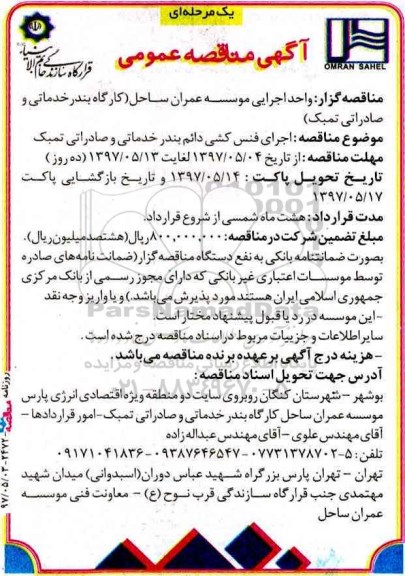 یک مرحله‌ای
قرارگاه سازندگی خاتم الانبیاء
OMRAN SAHEL
آگهی مناقصه عمومی
مناقصه گزار: واحد اجرایی موسسه عمران ساحل(کارگاه بندر خدماتی و
صادراتی تمبک)
موضوع مناقصه: اجرای فنس کشی دائم بندر خدماتی و صادراتی تمبک
مهلت مناقصه: از تاریخ ۱۳۹۷/۰۵/۰۴ لغایت ۱۳۹۷/۰۵/۱۳ (ده روز)
تاریخ تحویل پاکت: ۱۳۹۷/۰۵/۱۴ و تاریخ بازگشایی پاکت
۱۳۹۷/۰۵/۱۷
مدت قرارداد: هشت ماه شمسی از شروع قرارداد.
مبلغ تضمین شرکت در مناقصه: ۸۰۰,۰۰۰,۰۰۰ ریال(هشتصد میلیون ریال).
بصورت ضمانتنامه بانکی به نفع دستگاه مناقصه گزار(ضمانت نامه‌های صادره
توسط موسسات اعتباری غیر بانکی که دارای مجوز رسمی از بانک مرکزی
جمهوری اسلامی ایران هستند مورد پذیرش می‌باشد.) و یا واریز وجه نقد
-این موسسه در رد یا قبول پیشنهاد مختار است.
سایر اطلاعات و جزییات مربوط در اسناد مناقصه درج شده است.
- هزینه درج آگهی بر عهده برنده مناقصه می‌باشد.
آدرس جهت تحویل اسناد مناقصه:
بوشهر – شهرستان کنگان روبروی سایت دو منطقه ویژه اقتصادی انرژی پارس
موسسه عمران ساحل کارگاه بندر خدماتی و صادراتی تمبک-امور قراردادها –
آقای مهندس علوی – آقای مهندس عبداله زاده
تلفن: ۵-۰۷۷۳۱۳۷۸۷۰۲-۰۹۳۸۷۶۴۶۵۴۷-۰۹۱۷۱۰۴۱۸۳۶
تهران – تهران پارس بزرگراه شهید عباس دوران(اسبدوانی) میدان شهید
مهتمدی جنب قرارگاه سازندگی قرب نوح (ع) – معاونت فنی موسسه
عمران ساحل
روزنامه مناقصه
۹۷/۰۵/۰۳-۲۴۷۲